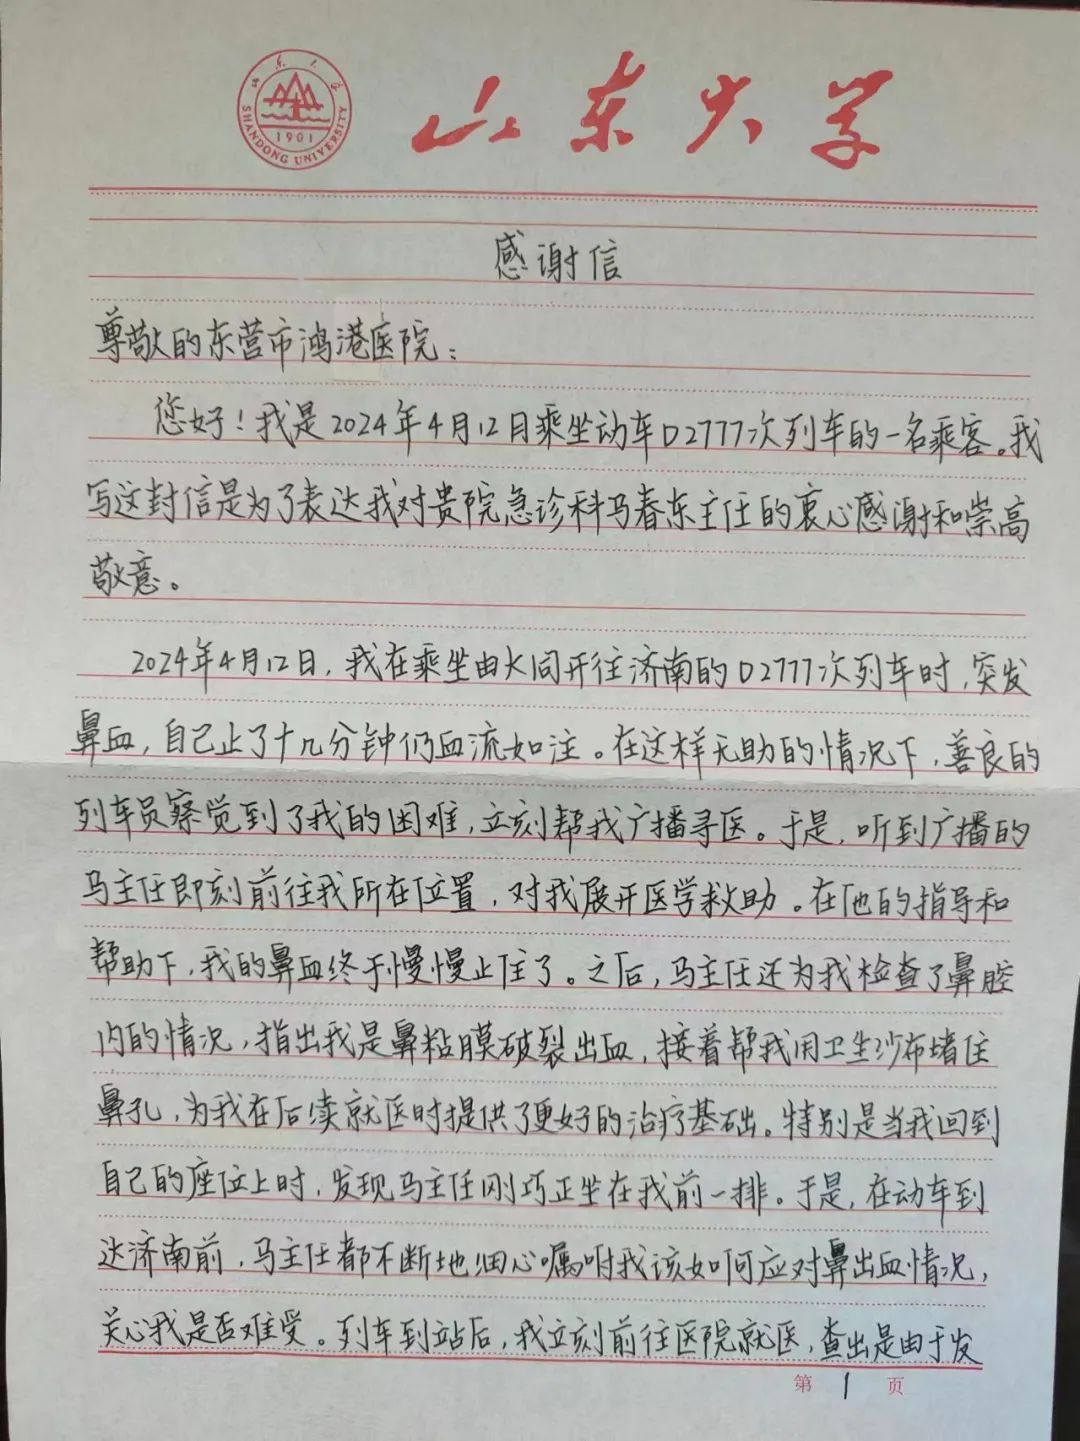 山东大学
山东大学
SHANDONG UNIVERSITY
1901
感谢信
尊敬的东营市鸿港医院：
您好！我是2024年4月12日乘坐动车D2777次列车的一名乘客。我
写这封信是为了表达我对贵院急诊科马春东主任的衷心感谢和崇高
敬意。
2024年4月12日，我在乘坐由大同开往济南的D2777次列车时，突发
鼻血，自己止了十几分钟仍血流如注。在这样无助的情况下，善良的
列车员察觉到了我的困难，立刻帮我广播寻医。于是，听到广播的
马主任即刻前往我所在位置，对我展开医学救助。在他的指导和
帮助下，我的鼻血终于慢慢止住了。之后，马主任还为我检查了鼻腔
内的情况，指出我是鼻粘膜破裂出血，接着帮我用卫生沙布堵住
鼻孔，为我在后续就医时提供了更好的治疗基础。特别是当我回到
自己的座位上时，发现马主任刚巧正坐在我前一排。于是，在动车到
达济南前，马主任都不断地细心嘱咐我该如何应对鼻出血情况，
关心我是否难受。列车到站后，我立刻前往医院就医，查出是由于发
第1页